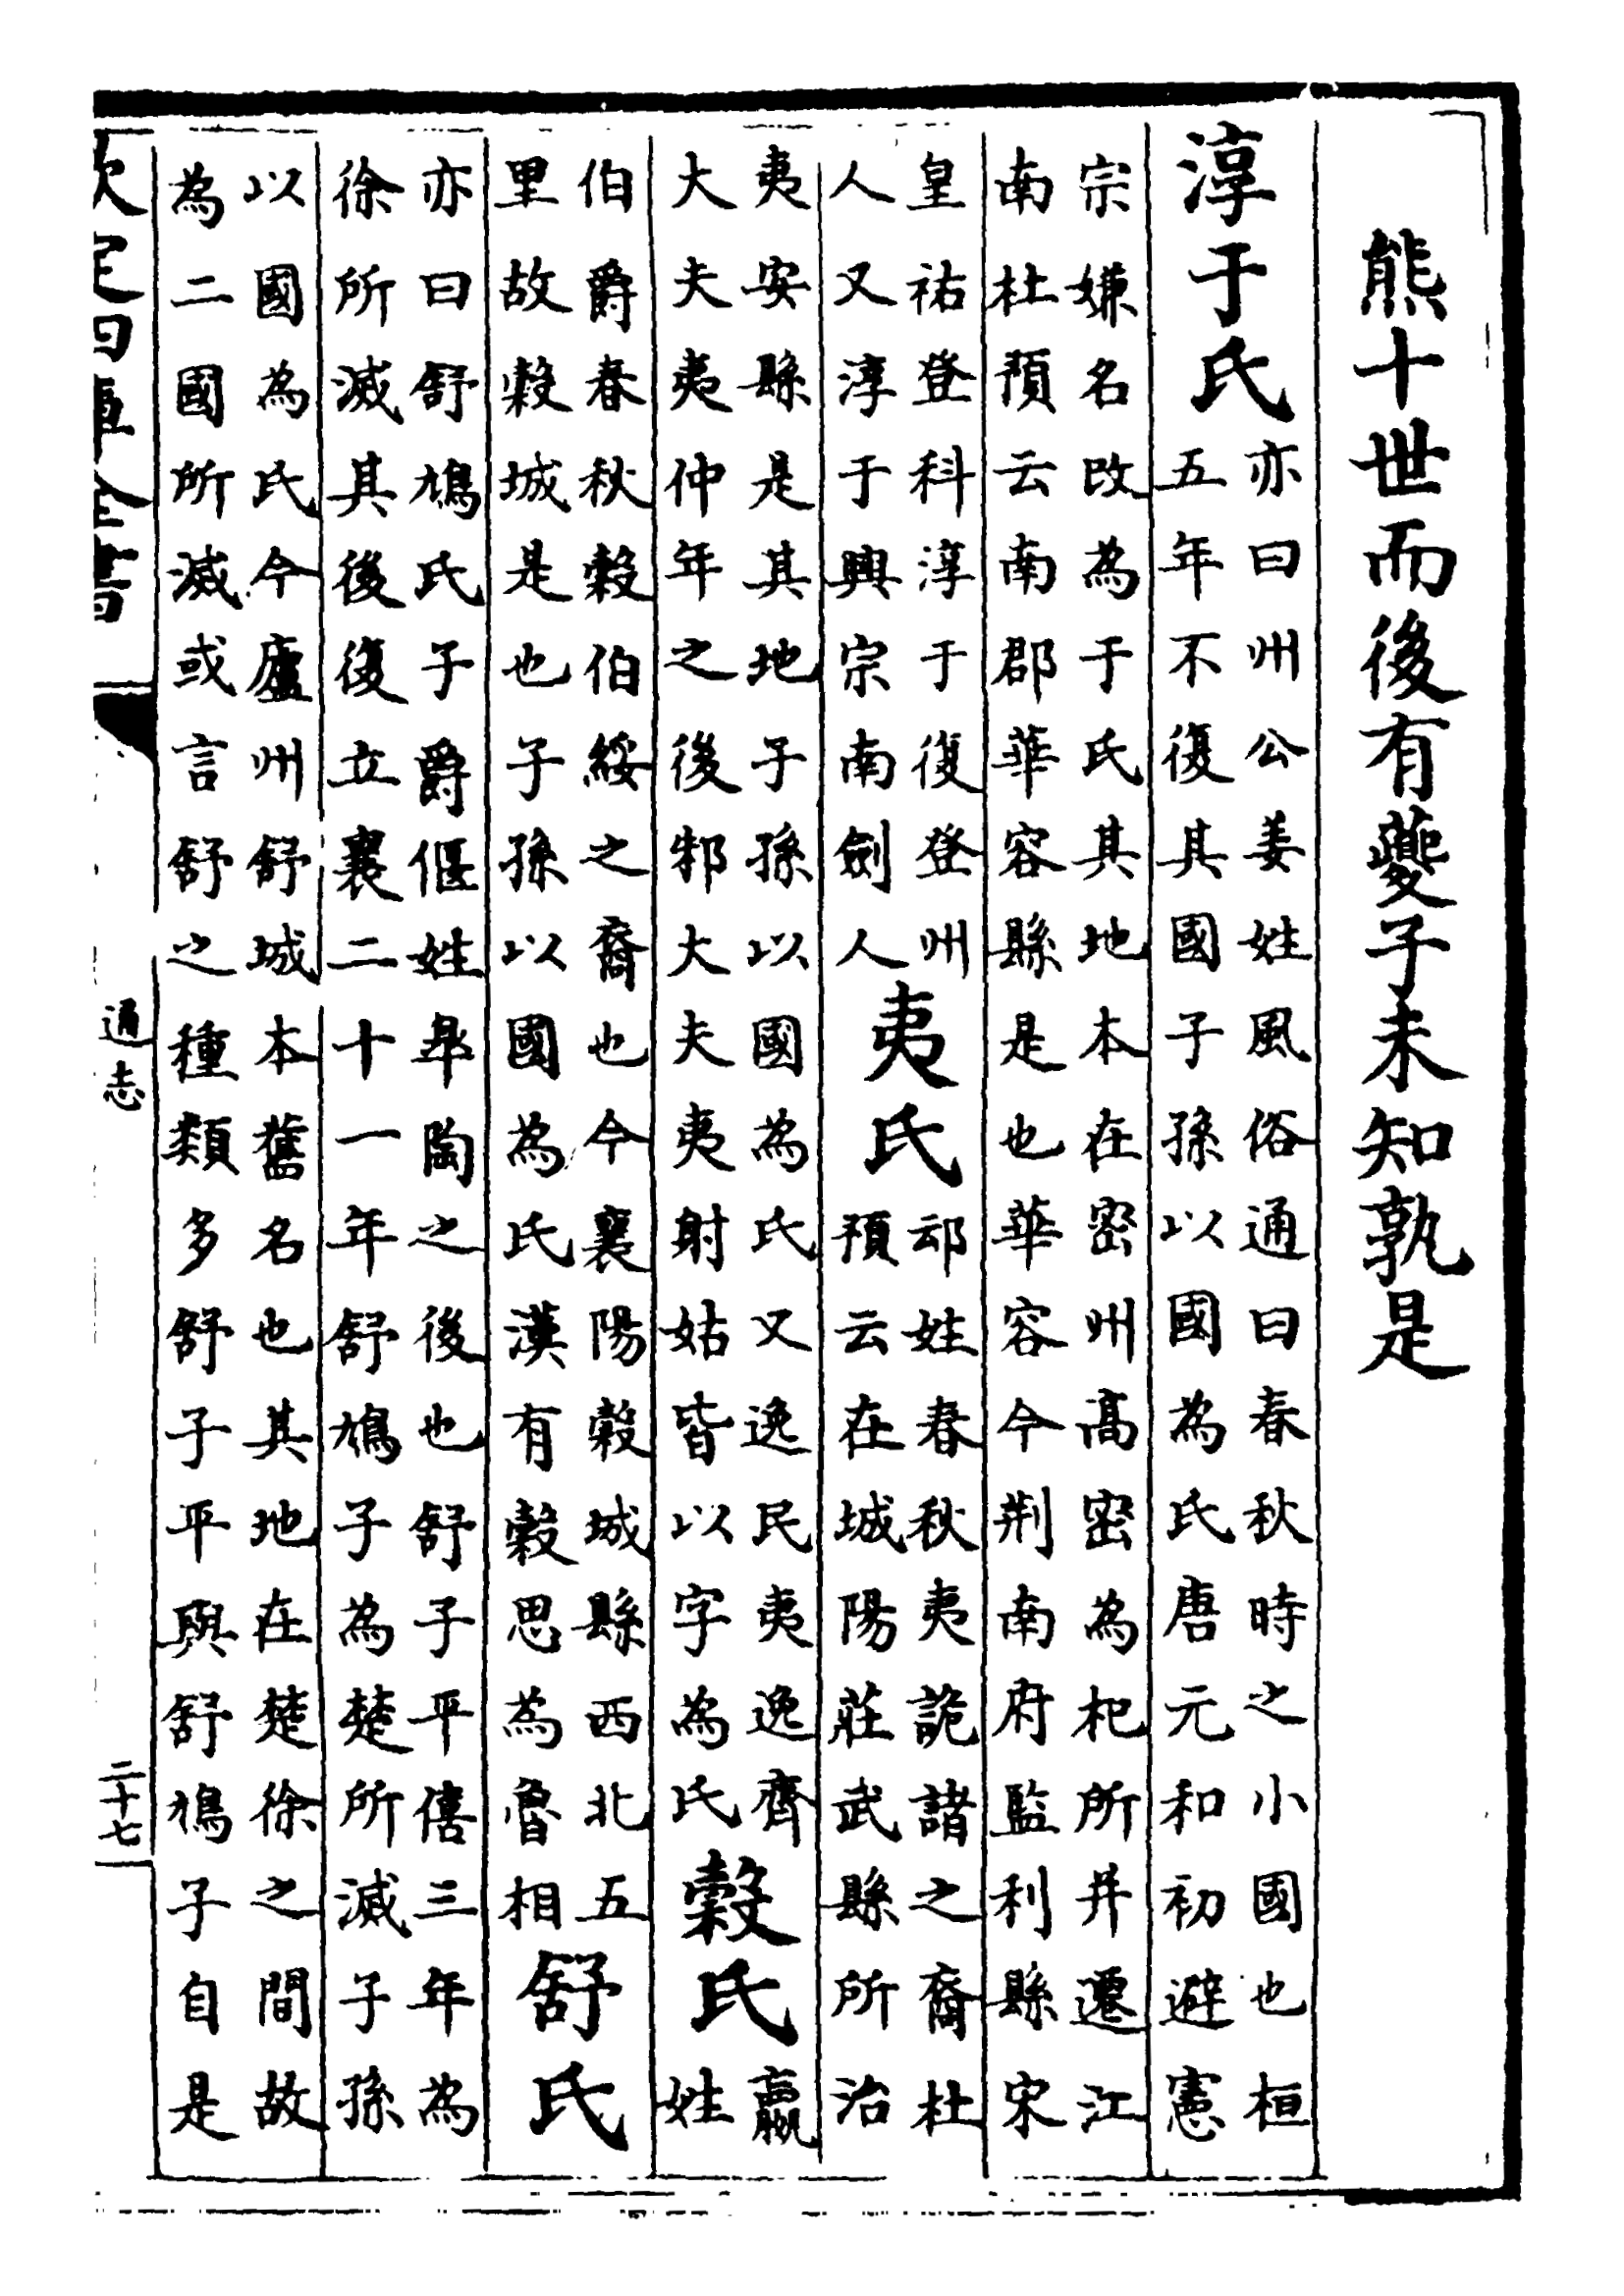 熊十世而後有夔子未知孰是
淳于氏
亦曰州公姜姓風俗通曰春秋時之小國也桓
五年不復其國子孫以國為氏唐元和初避憲
宗嫌名改為于氏其地本在密州高密為杞所并遷江
南杜預云南郡華容縣是也華容今荆南府監利縣宋
皇祐登科淳于復登州
人又淳于興宗南劍人
夷氏
邧姓春秋夷詭諸之裔杜
預云在城陽莊武縣所治
夷安縣是其地子孫以國為氏又逸民夷逸齊
大夫夷仲年之後邾大夫夷射姑皆以字為氏
穀氏
嬴
姓
伯爵春秋穀伯綏之裔也今襄陽穀城縣西北五
里故穀城是也子孫以國為氏漢有穀思為魯相
舒氏
亦曰舒鳩氏子爵偃姓臯陶之後也舒子平僖三年為
徐所滅其後復立襄二十一年舒鳩子為楚所滅子孫
以國為氏今廬州舒城本舊名也其地在楚徐之間故
為二國所滅或言舒之種類多舒子平與舒鳩子自是
欽定四庫全書
通志
二十七